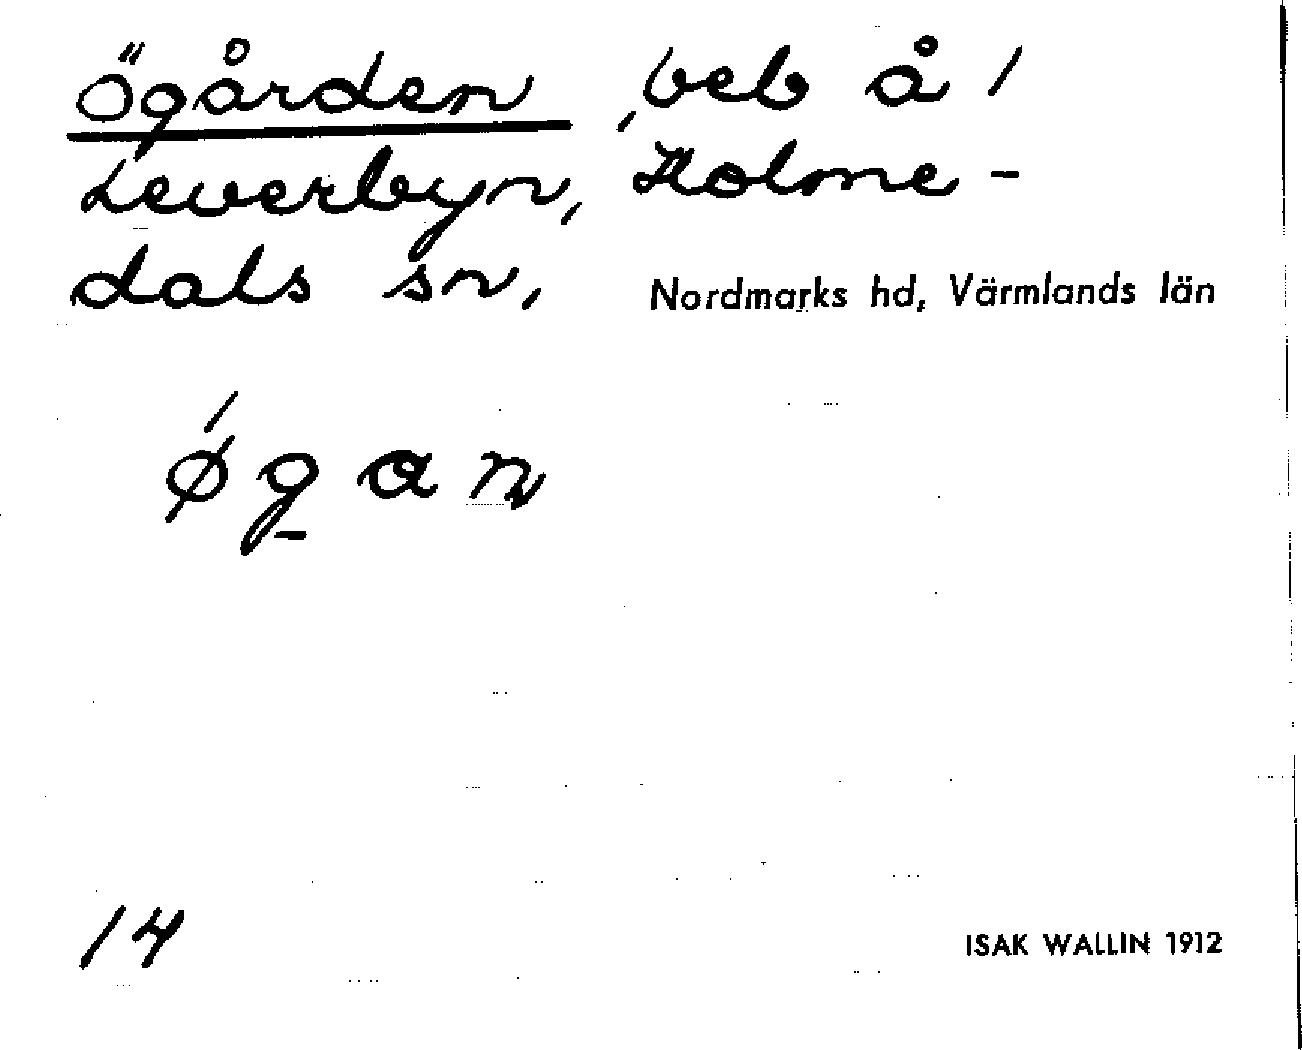 Ögården, beb å /
Leverbyn, Holme-
dals sn, Nordmarks hd, Värmlands län
ǿg̲an
14
ISAK WALLIN 1912